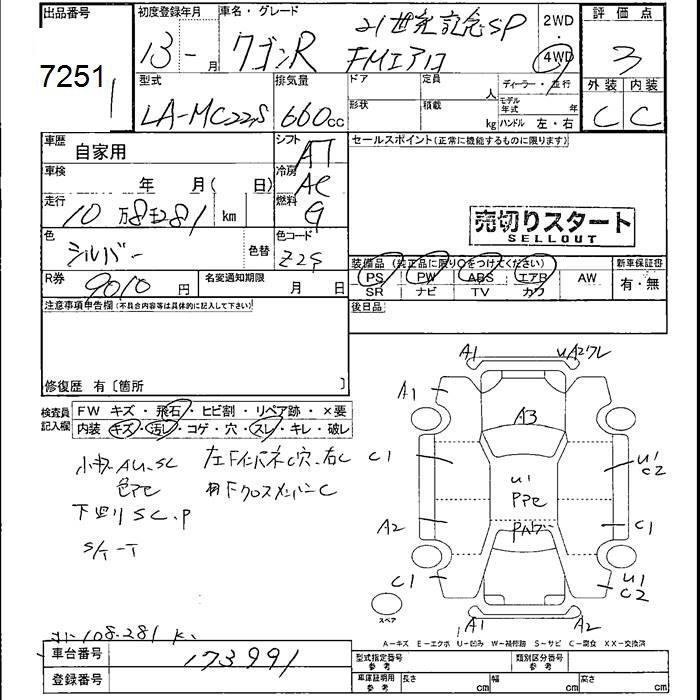 出品番号 初度登録年月 車名・グレード 2WD 評価点
7251
13 - 月 ワゴンR 21世紀記念SP
FMエアロ 4WD 3
型式 排気量 ドア 定員 人 ディーラー・並行 外装 内装
LA-MC22S 660cc 形状 積載 kg モデル年式 年 ハンドル 左・右 C C
車歴 自家用 シフト AT セールスポイント(正常に機能するものに限ります)
車検 年 月( 日) 冷房 AC
走行 10万8千281 km 燃料 G
売切りスタート
SELLOUT
色 シルバー 色替 色コード Z2S
装備品(純正品に限り○をつけてください) 新車保証書
PS PW ABS エアB AW 有・無
SR ナビ TV カワ
R券 9010円 名変通知期限 月 日
後日品
注意事項申告欄(不具合内容等は具体的に記入して下さい)
修復歴 有〔箇所 〕
検査員記入欄 FW キズ・飛石・ヒビ割・リペア跡・×要
内装 キズ・汚レ・コゲ・穴・スレ・キレ・破レ
小キズ AU、SC
下廻り SC.P
S/T-T
A1
A1
A3
C1
U1
C2
U1
PPC
A2
C1
C1
U1
C2
A1
A2
スペア
A-キズ E-エクボ U-凹み W-補修跡 S-サビ C-腐食 XX-交換済
108.281 K
車台番号 173991
登録番号
型式指定番号 参考 類別区分番号 参考
車庫証明用 参考 長さ cm 幅 cm 高さ cm